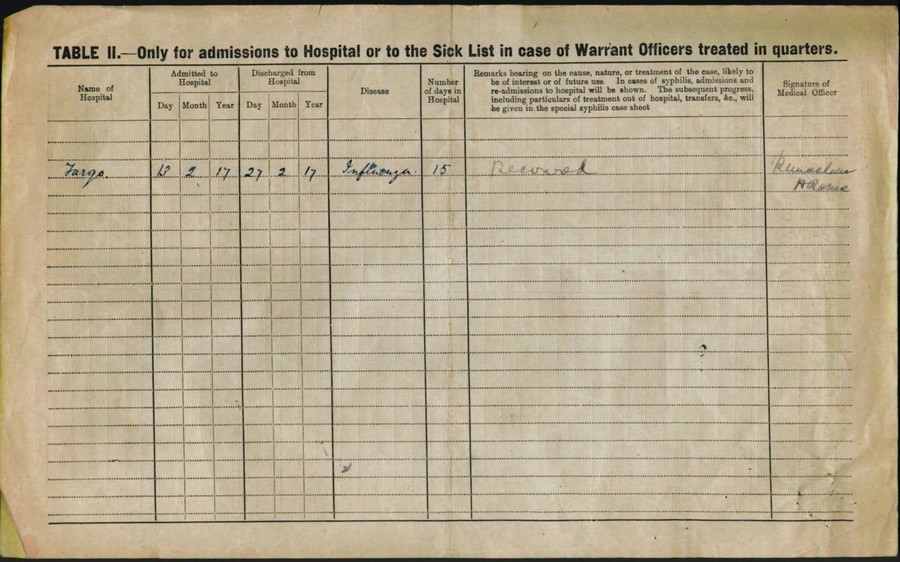 TABLE II.—Only for admissions to Hospital or to the Sick List in case of Warrant Officers treated in quarters.
Name of
Hospital
Admitted to
Hospital
Day Month Year
Discharged from
Hospital
Day Month Year
Disease
Number
of days in
Hospital
Remarks bearing on the cause, nature, or treatment of the case, likely to
be of interest or of future use. In cases of syphilis, admissions and
re-admissions to hospital will be shown. The subsequent progress,
including particulars of treatment out of hospital, transfers, &c., will
be given in the special syphilis case sheet
Signature of
Medical Officer
Fargo. 13 2 17 27 2 17 Influenza. 15 Recovered